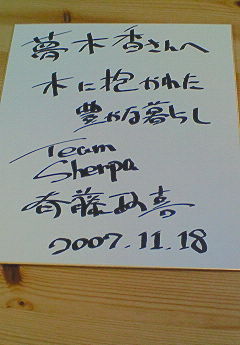 夢木香さんへ
木に抱かれた
豊かな暮らし
Team
Sherpa
斉藤政喜
2007.11.18